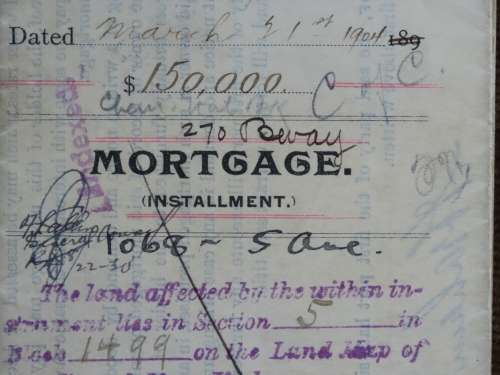 Dated March 21st 1904 189
$150,000.
C of C.
270 Bway
MORTGAGE.
Indexed
(INSTALLMENT.)
1068 ~ 5 Ave.
22-30
The land affected by the within in-
strument lies in Section 5 in
Block 1499 on the Land Map of